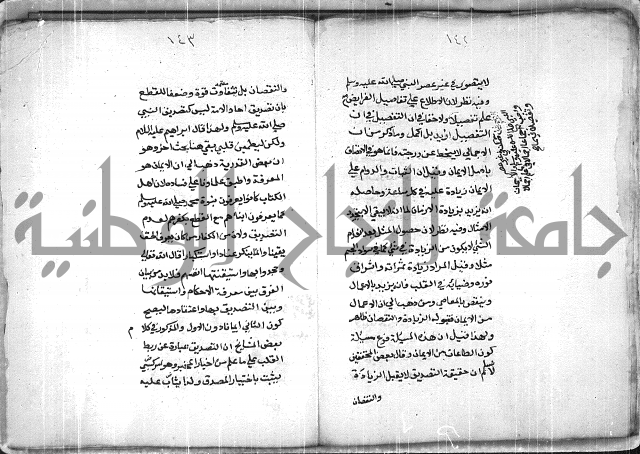 ١٤٢
لا يتصور في غير عصر النبي صلى الله عليه وسلم
وفيه نظر لان الاطلاع على تفاصيل الفرايض
علم تفصيلا ولا خفا في ان التفصيل في ان
التفصيل ازيد بل اكمل وما ذكر من ان
الاجمالي لا ينحط عن درجته فانما هو في الاتصاف
باصل الايمان وقيل ان الثبات والدوام على
الايمان زيادة عليه في كل ساعة وحاصله
انه يزيد بزيادة الازمان لما انه لا يبقى الا بتجدد
الامثال وفيه نظر لان حصول المثل بعد انعدام
الشي لا يكون من الزيادة في شي كما في سواد الجسم
مثلا وقيل المراد زيادة ثمراته واشراق
نوره وضيايه في القلب فانه يزيد بالاعمال
وينقص بالمعاصي ومن ذهب الى ان الاعمال
من الايمان فقبوله الزيادة والنقصان ظاهر
ولهذا قيل ان هذه المسئلة فرع مسئلة
كون الطاعات من الايمان وقال بعض المحققين
لا نسلم ان حقيقة التصديق لا يقبل الزيادة
والنقصان
١٤٣
والنقصان بل يتفاوت قوة وضعفا للقطع
بان تصديق احاد الامة ليس كتصديق النبي
صلى الله عليه وسلم ولهذا قال ابراهيم عليه السلام
ولكن ليطمين قلبي بقي هنا بحث اخر وهو
ان بعض القدرية ذهب الى ان الايمان هو
المعرفة واطبق علماونا على فساده لان اهل
الكتاب كانوا يعرفون نبوة محمد صلى الله عليه وسلم
كما يعرفون ابناهم مع القطع بكفرهم لعدم
التصديق ولان من الكفار من كان يعرف الحق
يقينا وانما ينكر عنادا واستكبارا قال الله تعالى
وجحدوا بها واستيقنتها انفسهم فلا بد من بيان
الفرق بين معرفة الاحكام واستيقانها
وبين التصديق بها واعتقادها ليصح
كون الثاني ايمانا دون الاول والمذكور في كلام
بعض المشايخ ان التصديق عبارة عن ربط
القلب على ما علم من اخبار المخبر وهو امر كسبي
يثبت باختيار المصدق ولذا يثاب عليه
جامعة النجاح الوطنية